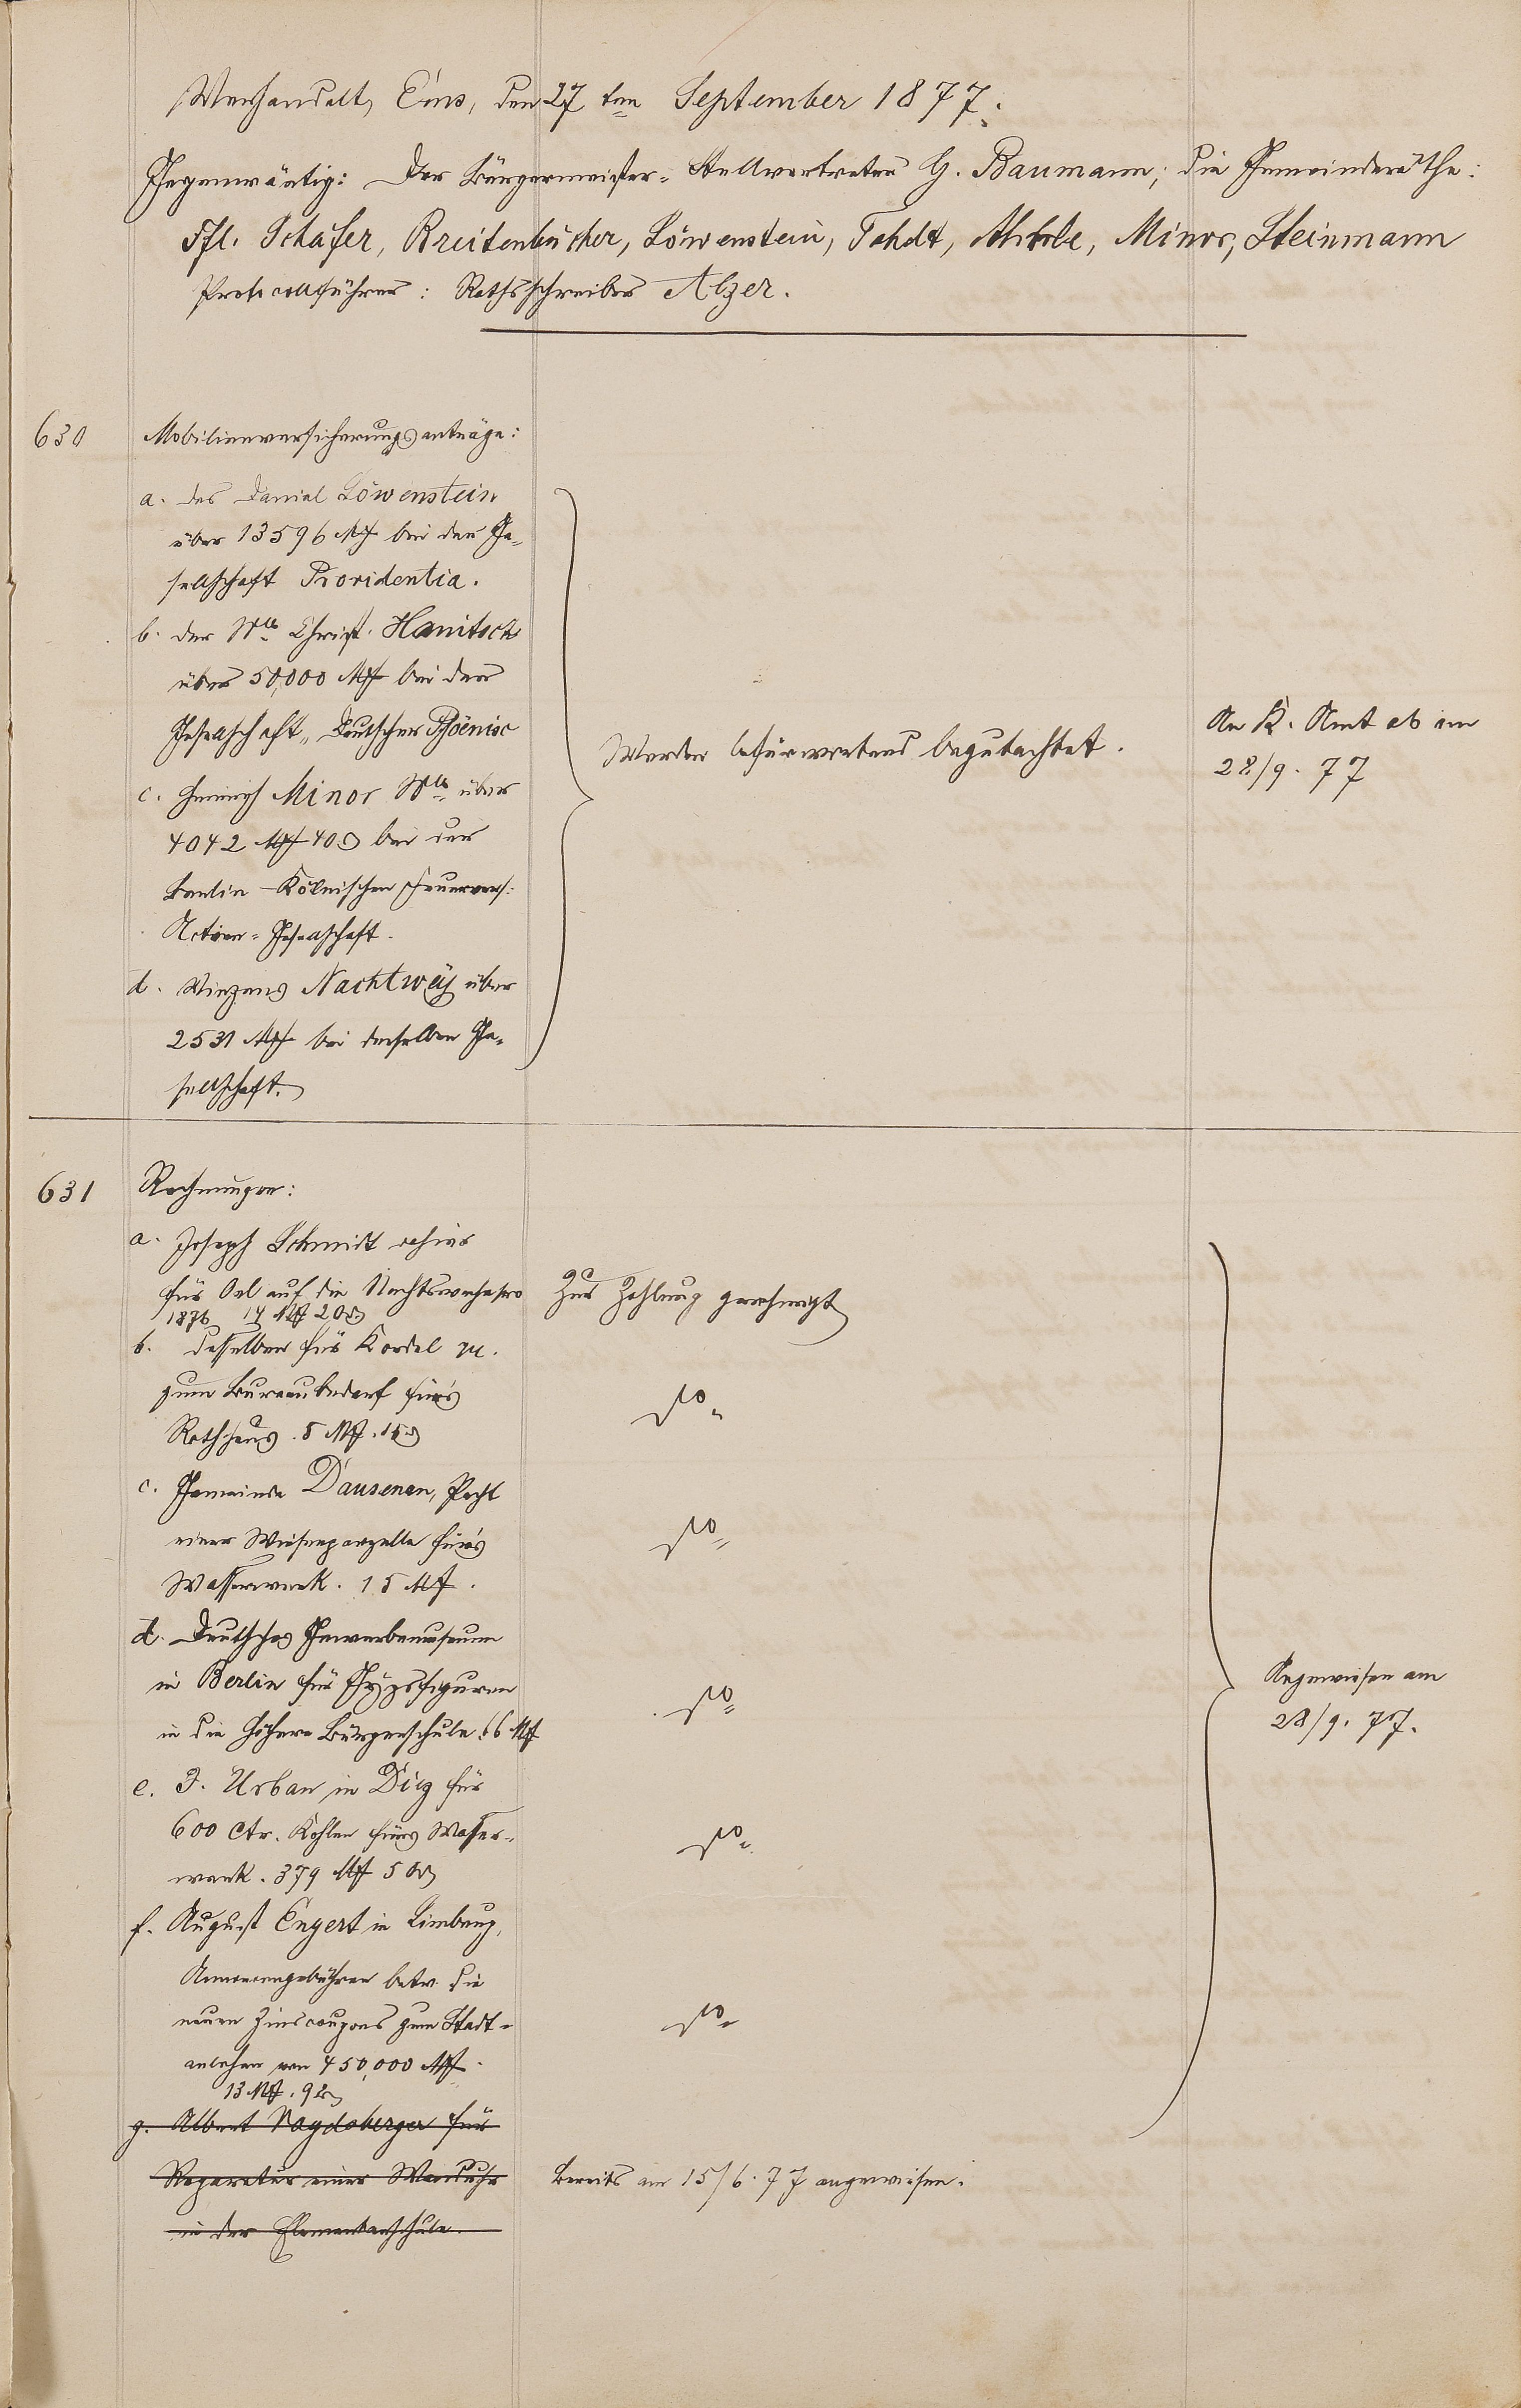 Verhandelt, Ems, den 27ten September 1877.
Gegenwärtig: Der Bürgermeister-Stellvertreter G. Baumann; die Gemeinderäthe:
Schäfer, Breitenbücher, Löwenstein, Minor, Steinmann
Protocollführer: Rathsschreiber Alzer.
630
Mobilienversicherungsanträge:
a. des Daniel Löwenstein
über 13596 M bei der Ge-
sellschaft Providentia.
b. der Wwe Christ. Hanitsch
über 50,000 M bei der
Gesellschaft "Deutscher Phöenix
c. Heinrich Minor Wwe über
4042 M 40 bei der
Berlin-Kölnischen Feuervers:
Actien-Gesellschaft.
d. Vinzens Nachtweÿ über
2531 M bei derselben Ge-
sellschaft.
Werden befürwortend begutachtet.
An K. Amt ab am
28/9. 77
631
Rechnungen:
a. Joseph Schmidt dahier
für Oel auf die Nachtswache pro
1876 14 M 20
Zur Zahlung genehmigt
b. desselben für Kordel pp.
zum Bureaubedarf für's
Rathhaus. 5 M. 15
do.
c. Gemeinde Dausenau, Pacht
einer Wiesenparzelle für's
Wasserwerk. 15 M.
do.
d. Deutsches Gewerbemuseum
in Berlin für Gypsfiguren
in die höhere Bürgerschule. 66 M
do.
e. J. Urban in Diez für
600 Ctr. Kohlen fürs Wasser-
werk. 379 M 50
do.
f. August Engert in Limburg,
Annoncengebühren betr. die
neuen Zinscoupons zum Stadt-
anlehen von 450,000 M.
13 M. 92
do.
Angewiesen am
28/9. 77.
g. Albert für
Reparatur einer Wanduhr
in der Elementarschule.
Bereits am 15/6. 77 angewiesen.